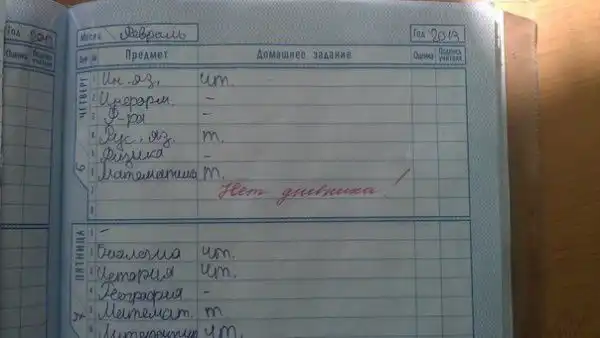 Год 2013
Оценка Подпись учителя
Месяц Февраль Год 2013
Предмет Домашнее задание Оценка Подпись учителя
ЧЕТВЕРГ
6
1 Ин. яз. чт.
2 Информ. -
3 Ф-ра -
4 Рус. яз. т.
5 Физика -
6 Математика т.
7 Нет дневника!
8
ПЯТНИЦА
1 -
2 Биология чт.
3 История чт.
4 География -
5 Математ. т
6 Литература чт.